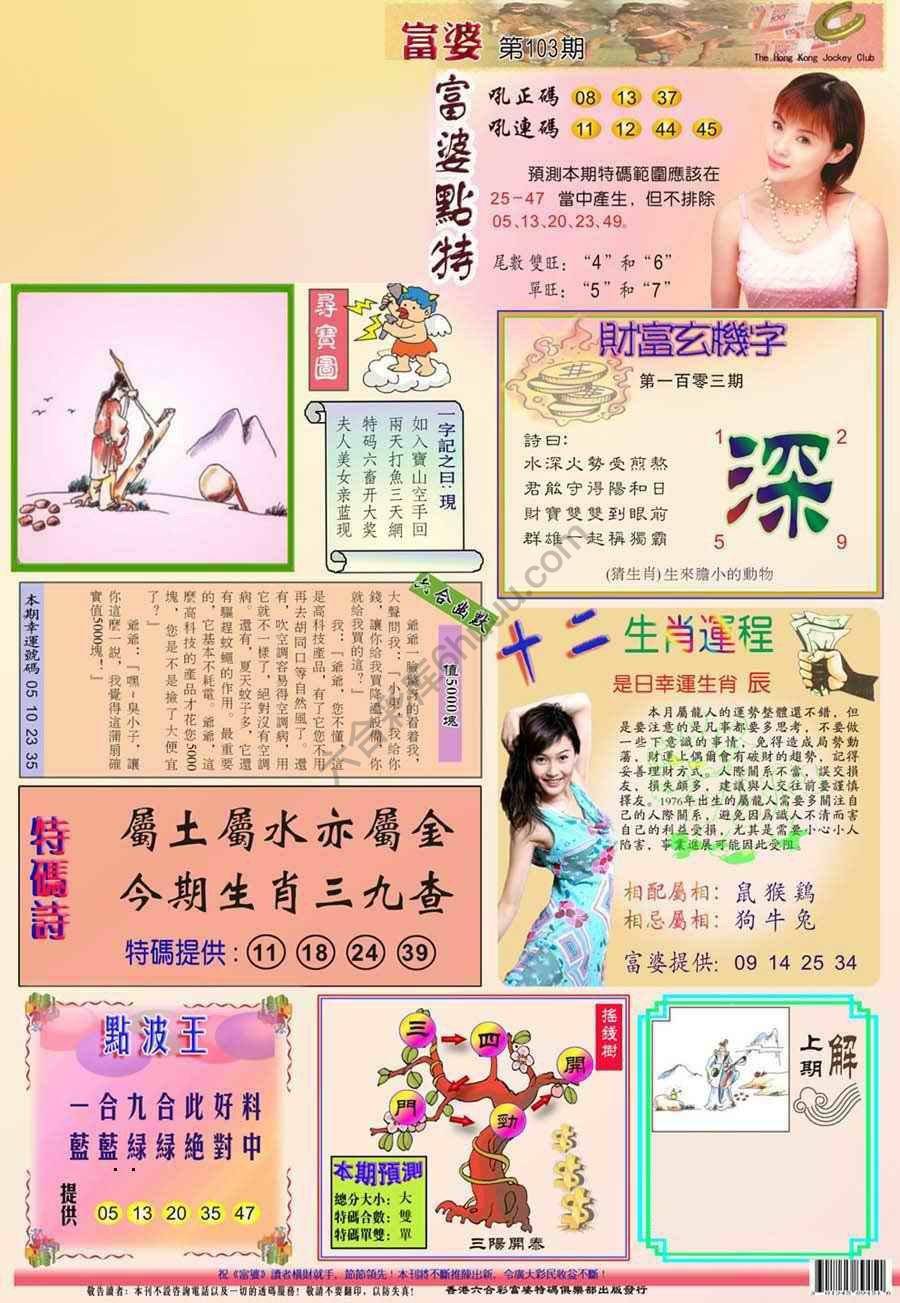 富婆 第103期
The Hong Kong Jockey Club
富婆點特
吼正碼 08 13 37
吼連碼 11 12 44 45
預測本期特碼範圍應該在
25-47 當中產生，但不排除
05、13、20、23、49。
尾數雙旺：“4”和“6”
單旺：“5”和“7”
尋寶圖
一字記之曰：現
如入寶山空手回
兩天打魚三天網
特码六畜开大奖
夫人美女亲蓝现
財富玄機字
第一百零三期
詩曰：
水深火勢受煎熬
君能守得陽和日
財寶雙雙到眼前
群雄一起稱獨霸
深
1 2
5 9
(猜生肖)生來膽小的動物
六合幽默
值5000塊
爺爺一臉驚訝的看着我，
大聲問我：「小東，我給你
錢，讓你給我買降溫設備，你
就給我買的這？」
我：「爺爺，您不懂，這
是高科技產品，有了它您不用
再去胡同口等自然風了。還
有，吹空調容易得空調病，用
它就不一樣了，絕對沒有空調
病。還有，夏天蚊子多，它還
有驅趕蚊蠅的作用。最重要
的，它基本不耗電。爺爺，這
麼高科技的產品才花您5000
塊，您是不是撿了大便宜
了？」
爺爺：「嘿~臭小子，讓
你這麼一說，我覺得這蒲扇確
實值5000塊！」
本期幸運號碼 05 10 23 35
十二生肖運程
是日幸運生肖 辰
本月屬龍人的運勢整體還不錯，但
是要注意的是凡事都要多思考，不要做
一些下意識的事情，免得造成局勢動
蕩，財運上偶爾會有破財的趨勢，記得
妥善理財方式。人際關系不當，誤交損
友，損失頗多，建議與人交往前要謹慎
擇友。1976年出生的屬龍人需要多關注自
己的人際關系，避免因爲識人不清而害
自己的利益受損，尤其是需要小心小人
陷害，事業進展可能因此受阻。
相配屬相：鼠 猴 鷄
相忌屬相：狗 牛 兔
富婆提供：09 14 25 34
特碼詩
屬土屬水亦屬金
今期生肖三九查
特碼提供：11 18 24 39
點波王
一合九合此好料
藍藍緑緑絕對中
提供 05 13 20 35 47
搖錢樹
三 四 開
門 勁
本期預測
總分大小：大
特碼合數：雙
特碼單雙：單
三陽開泰
上期解
祝《富婆》讀者橫財就手，節節領先！本刊將不斷推陳出新，令廣大彩民收益不斷！
敬告讀者：本刊不設咨詢電話以及一切的透碼服務！敬請不要翻印，以防失真！ 香港六合彩富婆特碼俱樂部出版發行